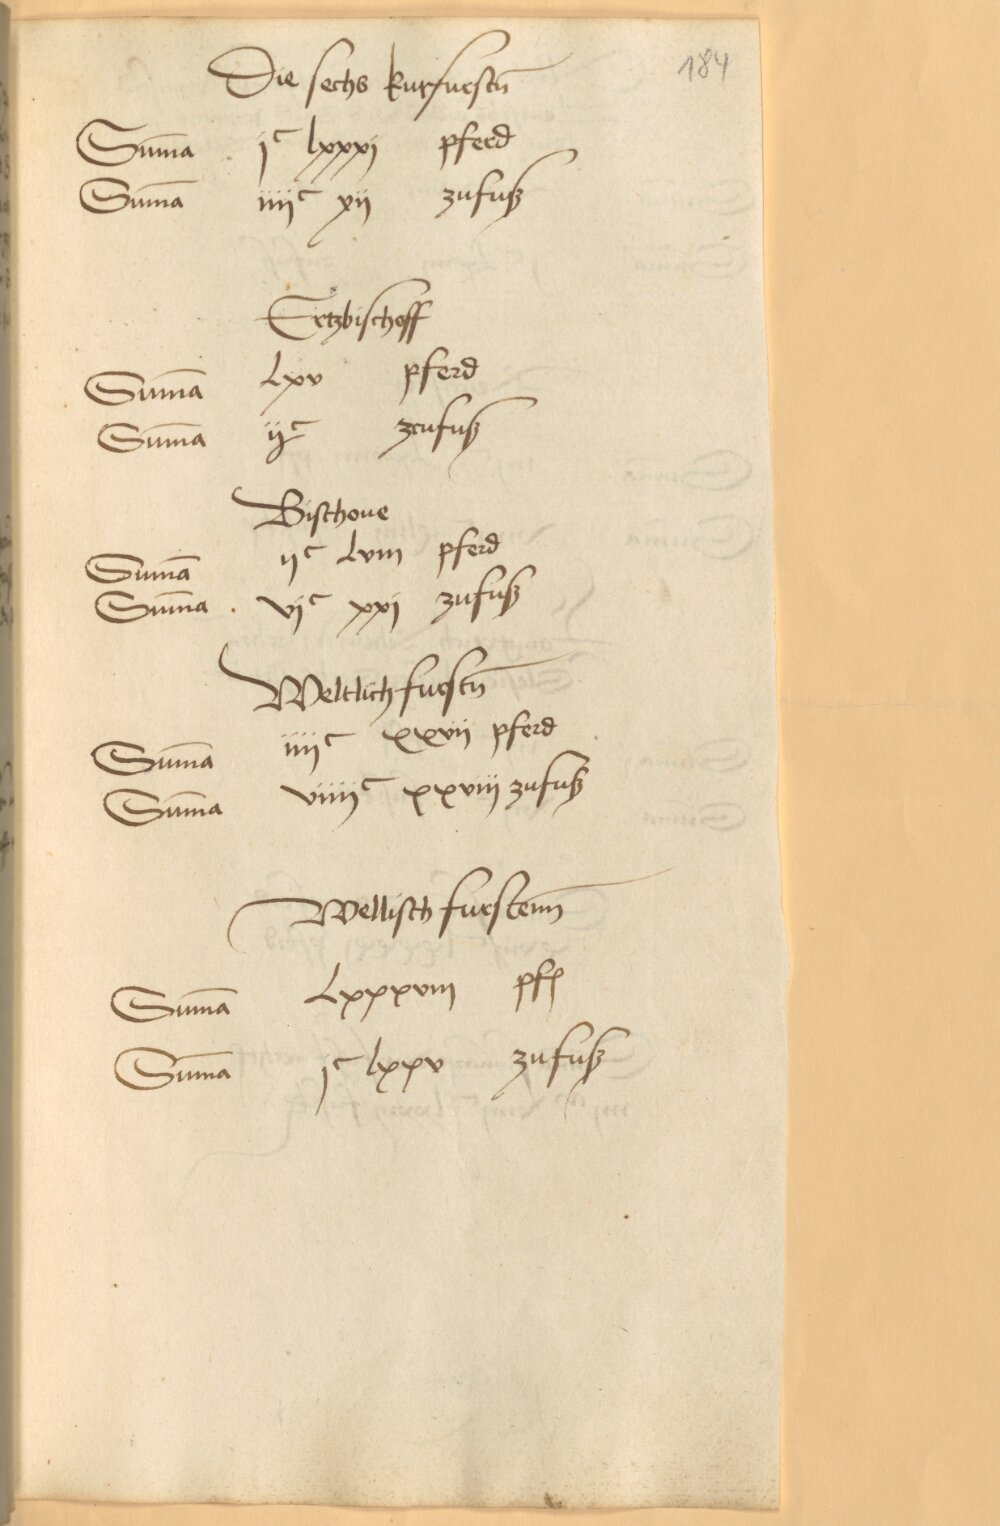 184
Die sechs kurfurstn̄
Sum̄a jᶜ lxxxj pferd
Sum̄a iiijᶜ xij zufuß
Ertzbischoff
Sum̄a Lxv pferd
Sum̄a ijᶜ zcufuß
Bischoue
Sum̄a ijᶜ Lviii pferd
Sum̄a vjᶜ xxj zufuß
Weltlich furstn̄
Sum̄a iiijᶜ xxvij pferd
Sum̄a viiijᶜ xxviij zufuß
Wellisch furstenn̄
Sum̄a Lxxxviii pf
Sum̄a jᶜ lxxv zufuß